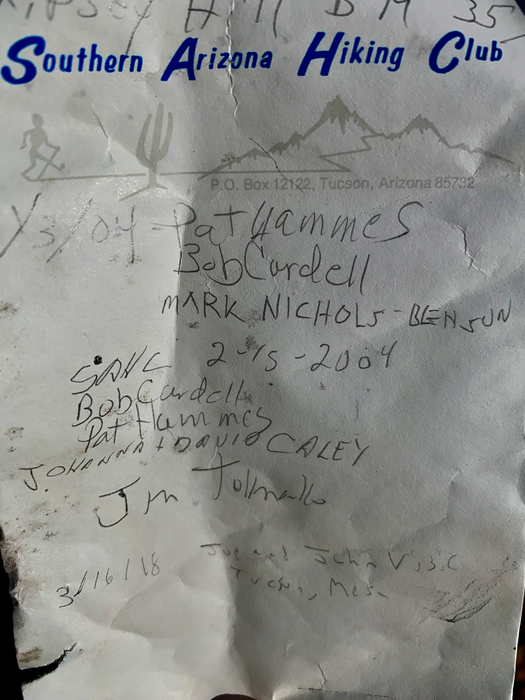 Hill BM 35
Southern Arizona Hiking Club
P.O. Box 12122, Tucson, Arizona 85732
/3/04 Pat Hammes
Bob Cardell
MARK NICHOLS-BENSON
SAHC 2-15-2004
Bob Cardell
Pat Hammes
JOHANNA + DAVID CALEY
Jim
3/16/18 Joe and John
Tucson, Mesa